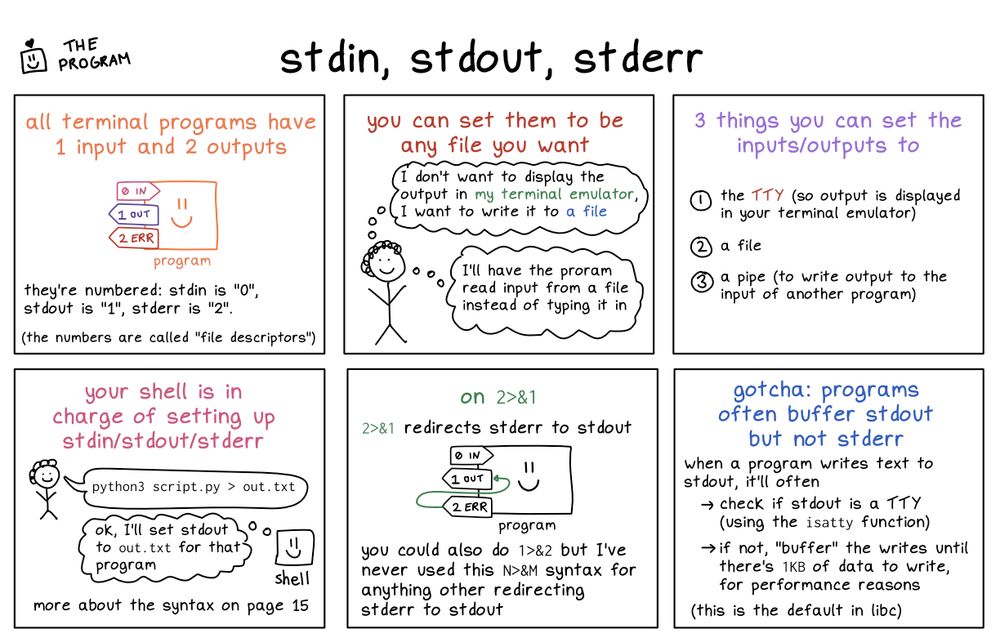 THE
PROGRAM
stdin, stdout, stderr
all terminal programs have
1 input and 2 outputs
0 IN
1 OUT
2 ERR
program
they're numbered: stdin is "0",
stdout is "1", stderr is "2".
(the numbers are called "file descriptors")
you can set them to be
any file you want
I don't want to display the
output in my terminal emulator,
I want to write it to a file
I'll have the proram
read input from a file
instead of typing it in
3 things you can set the
inputs/outputs to
1 the TTY (so output is displayed
in your terminal emulator)
2 a file
3 a pipe (to write output to the
input of another program)
your shell is in
charge of setting up
stdin/stdout/stderr
python3 script.py > out.txt
ok, I'll set stdout
to out.txt for that
program
shell
more about the syntax on page 15
on 2>&1
2>&1 redirects stderr to stdout
0 IN
1 OUT
2 ERR
program
you could also do 1>&2 but I've
never used this N>&M syntax for
anything other redirecting
stderr to stdout
gotcha: programs
often buffer stdout
but not stderr
when a program writes text to
stdout, it'll often
→ check if stdout is a TTY
(using the isatty function)
→ if not, "buffer" the writes until
there's 1KB of data to write,
for performance reasons
(this is the default in libc)